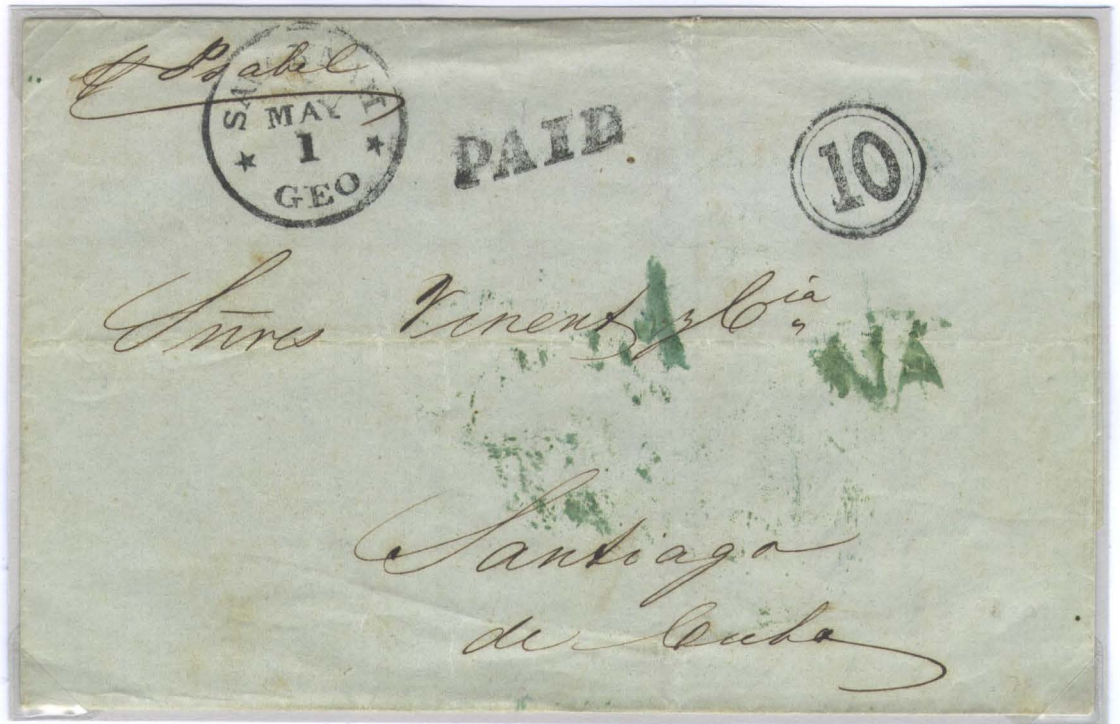 p Isabel
SAVANNAH
MAY
1
GEO
PAID
10
Sñres Vinent y Cia
NA
Santiago
de Cuba